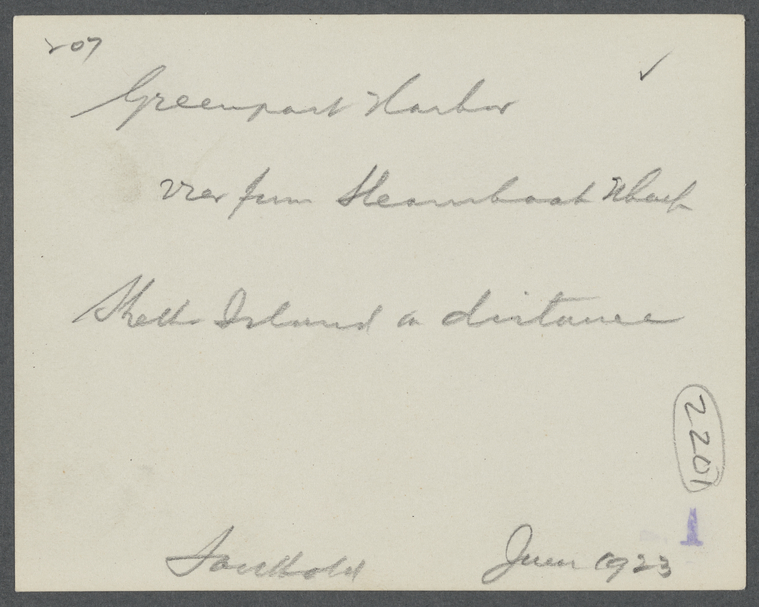 207 ✓
Greenport Harbor
View from Steamboat Wharf
Shelter Island a distance
2201
1
Southold June 1923